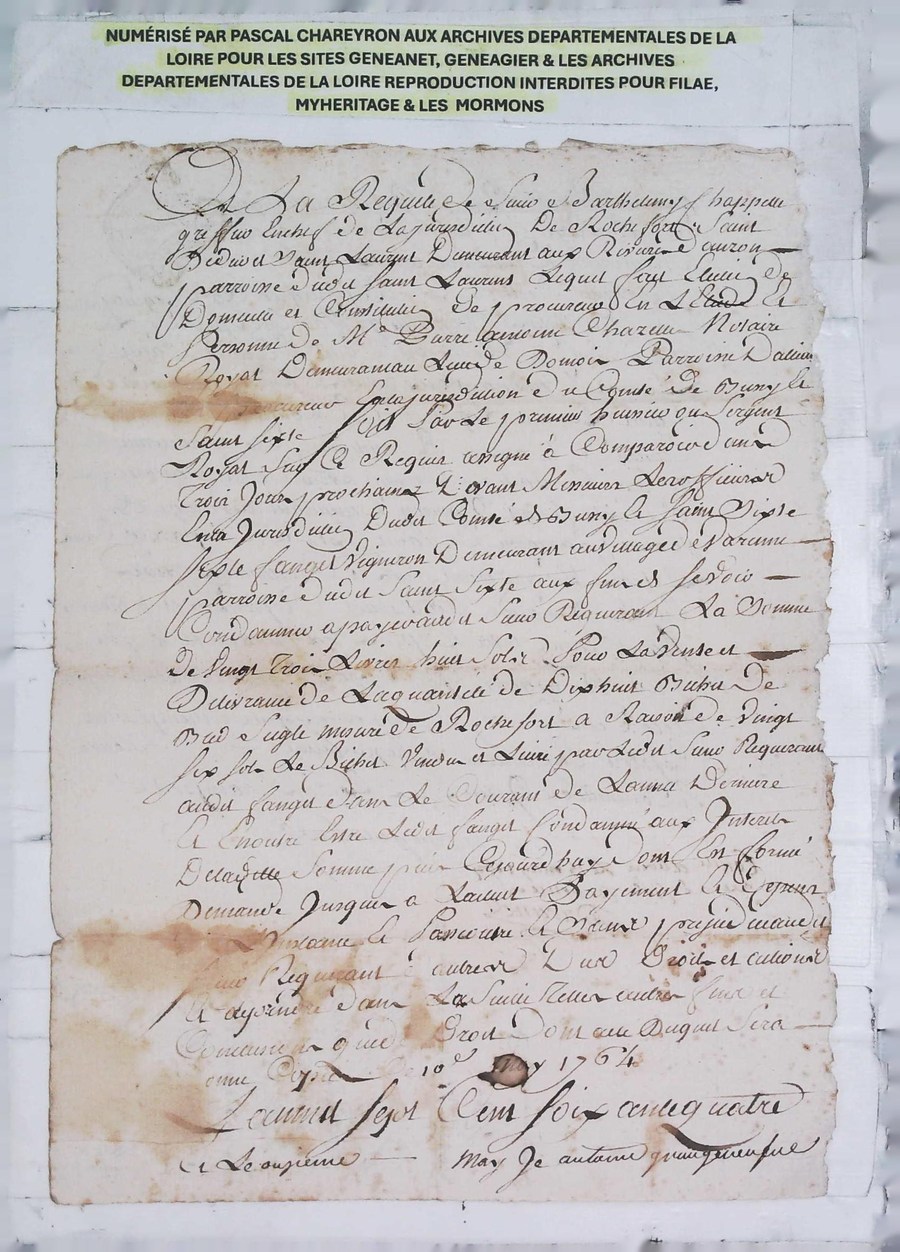 NUMÉRISÉ PAR PASCAL CHAREYRON AUX ARCHIVES DEPARTEMENTALES DE LA
LOIRE POUR LES SITES GENEANET, GENEAGIER & LES ARCHIVES
DEPARTEMENTALES DE LA LOIRE REPRODUCTION INTERDITES POUR FILAE,
MYHERITAGE & LES MORMONS
De La Requete de Sieur Barthelemy Chappelle
greffier En chef de La jurisdiction De Rochefort Saint
Didier et Saint Laurent Demeurant aux
parroisse dudit Saint Laurent Lequel fait Election de
Domicille et Constitution de procureur En L'Etude Et
Personne de Me Pierre Chazelle Notaire
Royal Demeurant au Lieu de Parroisse
procureur En La jurisdiction du Comté De Bussy Et
Saint Sixte Soit Par Le premier huissier ou Sergent
Royal Sur Ce Requis assigné à Comparoir dans
Trois Jours prochains Devant Messieurs Les officiers
En La Jurisdiction Dudit Comté de Bussy Et Saint Sixte
Sixte fanget Vigneron Demeurant au Village de Varenne
Parroisse dudit Saint Sixte aux fins de Se Voir
Condamner a payer audit Sieur Requerant La Somme
de Vingt Trois Livres huit Sols Pour La Vente et
Delivrance de La quantité de Dixhuit Bichet De
Bled Seigle mesure de Rochefort a Raison de Vingt
Six sols Le Bichet Vendu et Livré par Ledit Sieur Requerant
audit fanget dans Le Courant de L'année Derniere
Et En outre Estre Ledit fanget Condamné aux Interets
De Laditte Somme Cejourd'huy dont En formé
Demande Jusques a Payement Et Depens
Sans prejudice audit
Sieur Requerant autres Dus Droits et actions
Et adjoindre dans La Suitte Telles autres fins et
Conclusions que de Droit Dont acte Duquel Sera
donné Copie Le 10e May 1764
L'an mil Sept Cent Soixante quatre
et Le onzieme May Je antoine